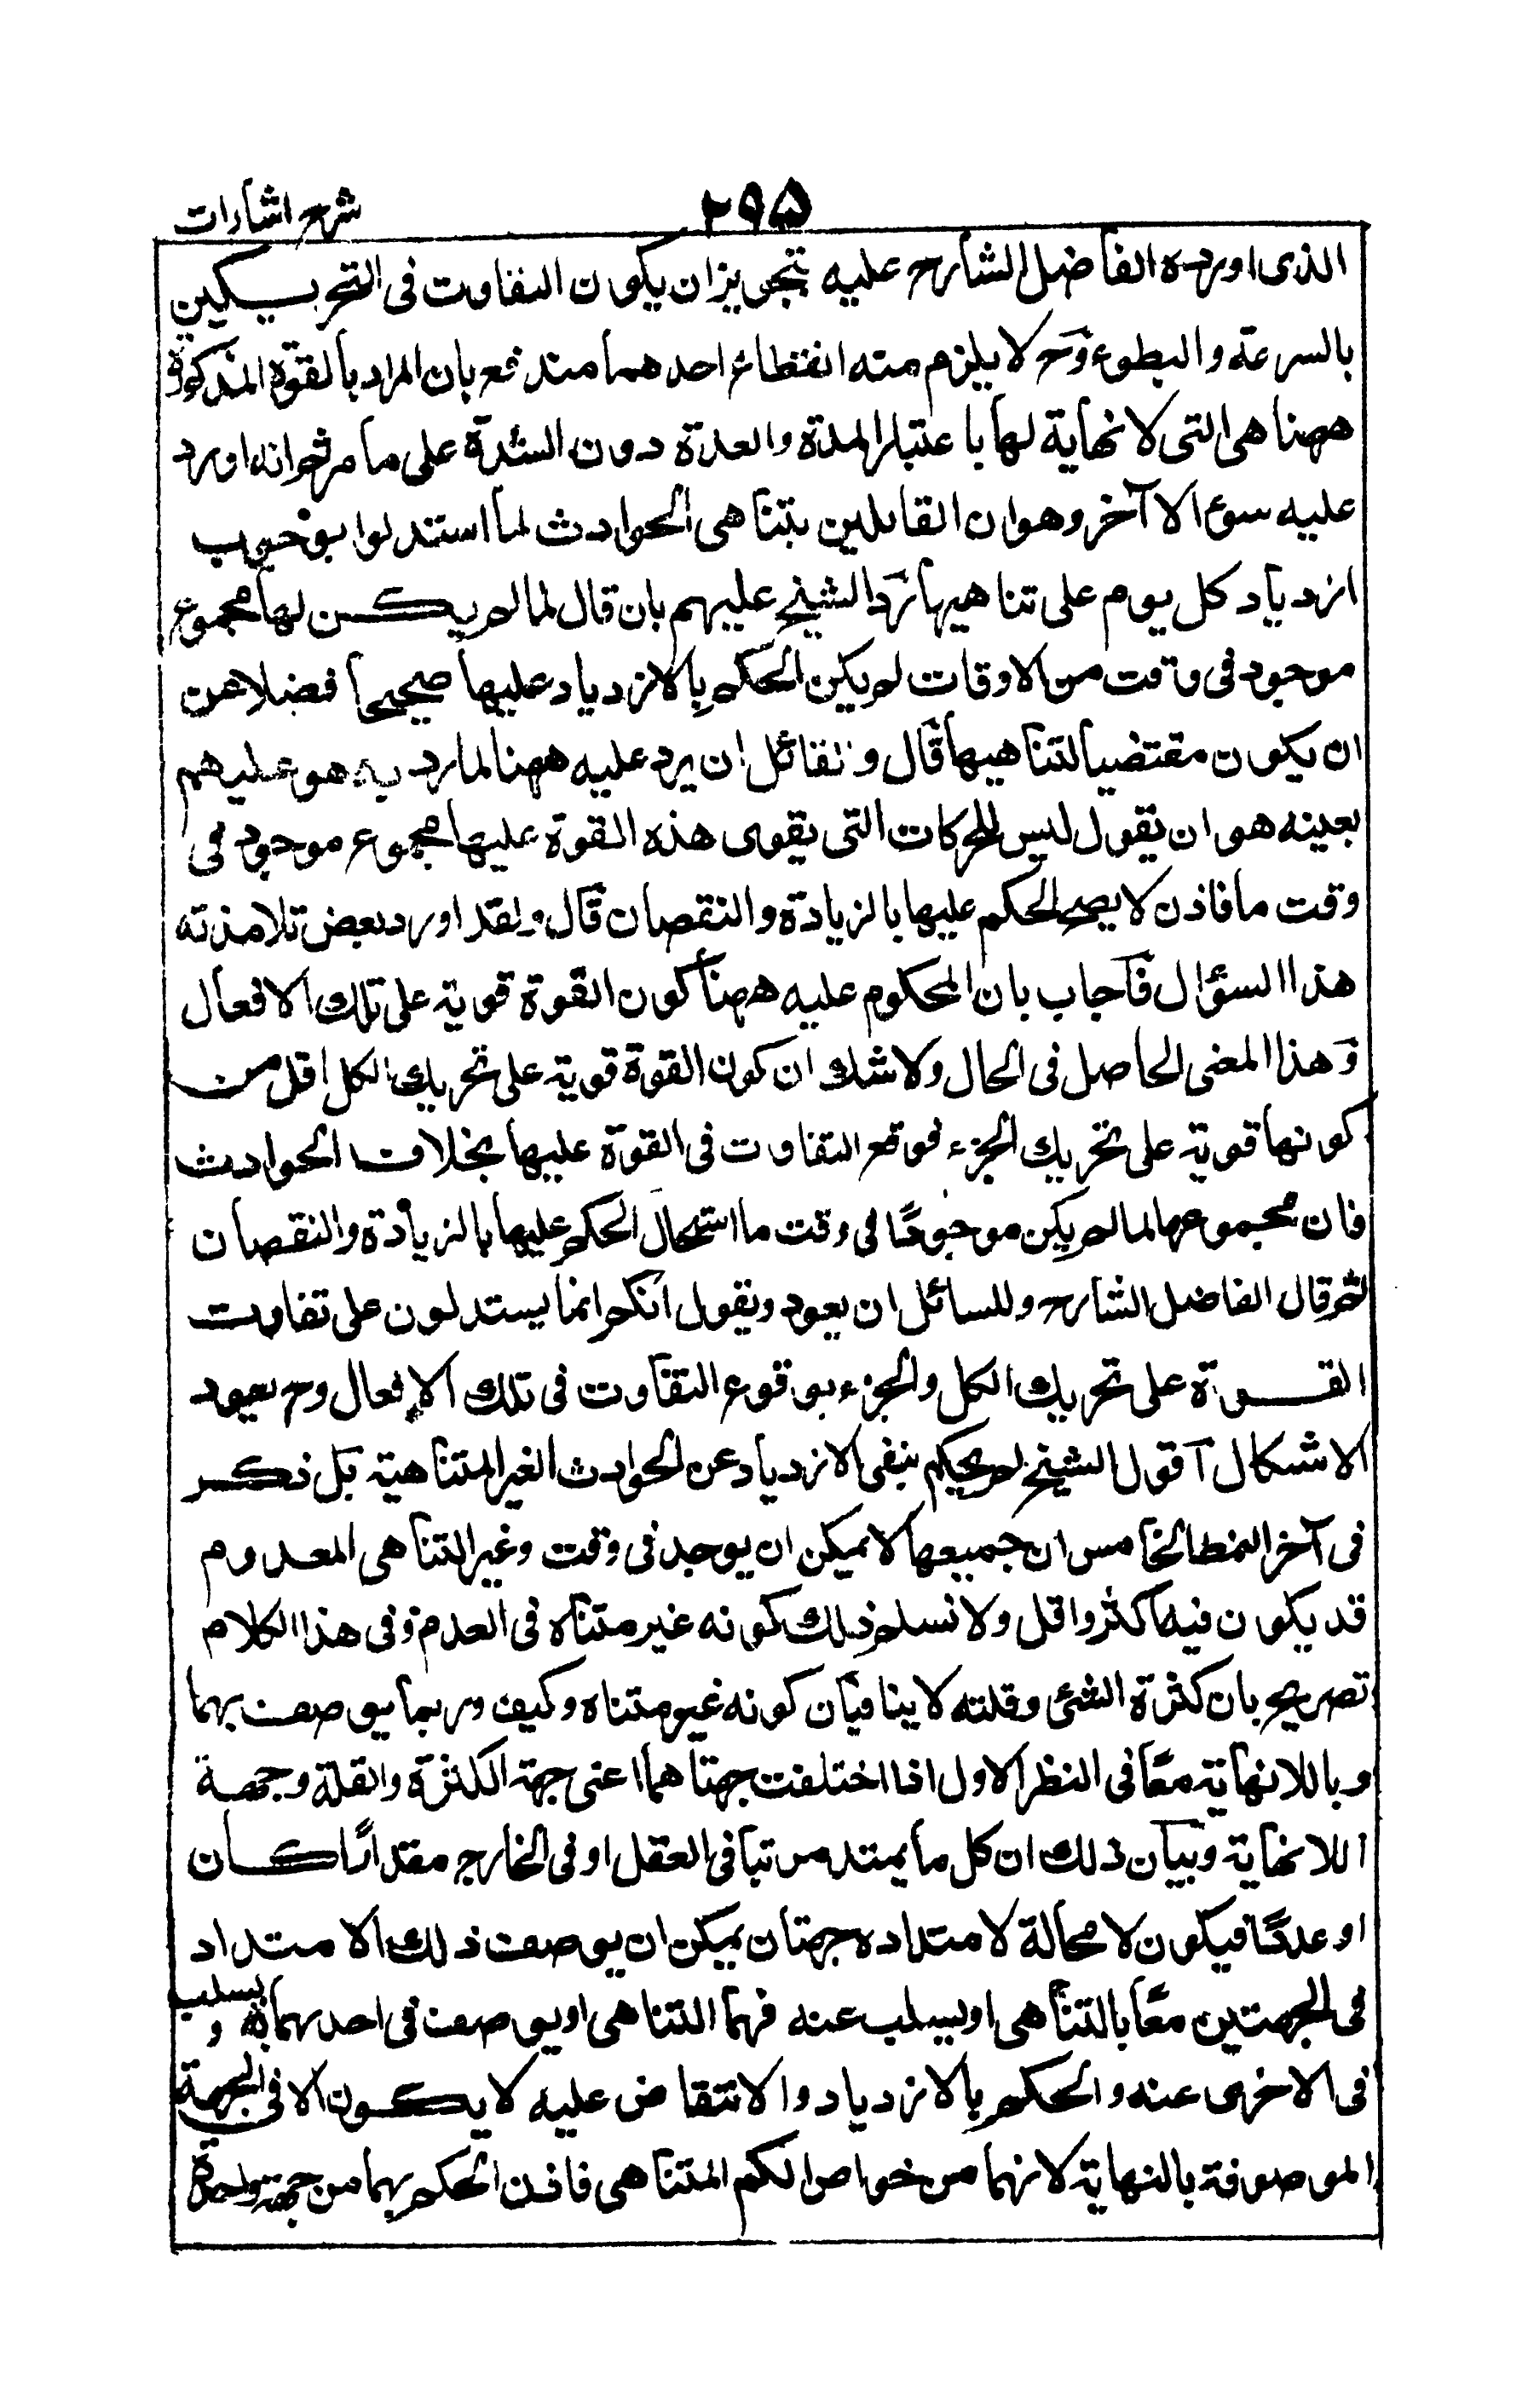 شرح اشارات
۲۹۵
الذی اورده الفاضل الشارح علیه بتجویز ان یکون التفاوت فی التحریکین
بالسرعة والبطوء وح لا یلزم منه انقطاع احدهما مندفع بان المراد بالقوة المذکورة
ههنا هی التی لا نهایة لها باعتبار المدة والعدة دون الشدة علی ما مر ثم انه اورد
علیه سوءالا آخر وهو ان القائلین بتناهی الحوادث لما استدلوا بوجوب
ازدیاد کل یوم علی تناهیها رد الشیخ علیهم بان قال لما لم یکن لها مجموع
موجود فی وقت من الاوقات لم یکن الحکم بالازدیاد علیها صحیحا فضلا عن
ان یکون مقتضیا لتناهیها قال ولقائل ان یرد علیه ههنا لما رد به هو علیهم
بعینه هو ان یقول لیس للحرکات التی یقوی هذه القوة علیها مجموع موجود فی
وقت ما فاذن لا یصح الحکم علیها بالزیادة والنقصان قال ولقد اورد بعض تلامذته
هذا السؤال فاجاب بان المحکوم علیه ههنا کون القوة قویة علی تلک الافعال
وهذا المعنی الحاصل فی الحال ولا شک ان کون القوة قویة علی تحریک الکل اقل من
کونها قویة علی تحریک الجزء فوقع التفاوت فی القوة علیها بخلاف الحوادث
فان مجموعها لما لم یکن موجودًا فی وقت ما استحال الحکم علیها بالزیادة والنقصان
ثم قال الفاضل الشارح وللسائل ان یعود ویقول انکم انما یستدلون علی تفاوت
القوة علی تحریک الکل والجزء بوقوع التفاوت فی تلک الافعال وح یعود
الاشکال اقول الشیخ لم یحکم بنفی الازدیاد عن الحوادث الغیر المتناهیة بل ذکر
فی آخر النمط الخامس ان جمیعها لا یمکن ان یوجد فی وقت وغیر المتناهی المعدوم
قد یکون فیه اکثر واقل ولا نسلم ذلک کونه غیر متناه فی العدم وفی هذا الکلام
تصریح بان کثرة الشئ وقلته لا ینافیان کونه غیر متناه وکیف وربما یوصف بهما
وباللانهایة معًا فی النظر الاول اذا اختلفت جهتاهما اعنی جهة الکثرة والقلة وجهة
اللانهایة وبیان ذلک ان کل ما یمتد مرتبا فی العقل او فی الخارج مقدارًا کان
او عددًا فیکون لا محالة لامتداده جهتان یمکن ان یوصف ذلک الامتداد
فی الجهتین معًا بالتناهی او یسلب عنه فهما التناهی او یوصف فی احدهما به ویسلب
فی الاخری عنه والحکم بالازدیاد والانتقاض علیه لا یکون الا فی الجهة
الموصوفة بالنهایة لانهما من خواص الکم المتناهی فاذن الحکم بهما من جهة واحدة